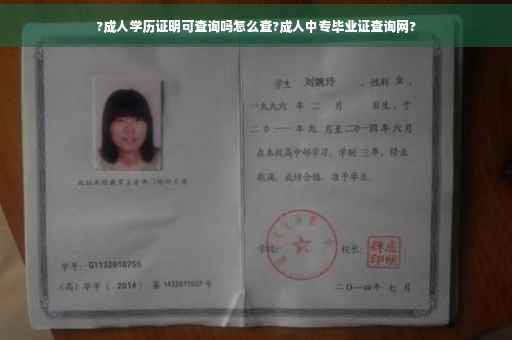 ?成人学历证明可查询吗怎么查?成人中专毕业证查询网?
学生 刘婉玲 ，性别 女 ，
一九九六 年 二 月 日生，于
二0一一 年 九 月至 二0一四 年 六 月
在本校高中部学习，学制 三 年，修业
期满，成绩合格，准予毕业。
学号: G1132010755
(高) 毕字 ( 2014 ) 第 1432011027 号
学校:
校长:
二〇一四年 七 月